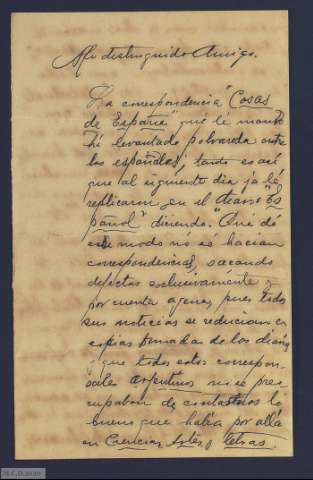 Mi distinguido Amigo.
La correspondencia "Cosas
de España" que lé mandó
há levantado polvareda entre
los españoles; tanto es así
que al siguiente dia ya lé
replicaron en el diario "Es
pañol" diciendo. "Qué dé
ese modo nó sé hacian
correspondencias, sacando
defectos exclusivamente y
por cuenta agena, pues todas
sus noticias se reducian en
copias tomadas de los diarios
y que todos estos correspon-
sales argentinos no se preo
cupaban de contarnos lo
bueno que habia por allá
en Ciencias, Artes, y letras.